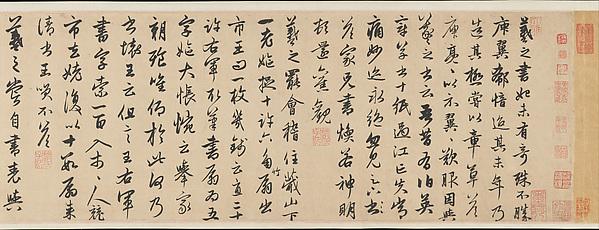 羲之書初未有奇殊不勝
庾翼郗愔迨其末年乃
造其極嘗以章草答
庾亮亮以示翼翼歎服因與
羲之書云吾昔有伯英
章草書十紙過江亡失常
痛妙迹永絕忽見足下
答家兄書煥若神明
頓還舊觀
羲之罷會稽住蕺山下
一老嫗捉十許六角竹扇出
市王問一枚幾錢云直二十
許右軍取筆書扇扇為五
字嫗大悵惋云舉家
朝飡唯仰於此何乃
書壞王云但言王右軍
書字索一百入市市人競
市去姥復以十數扇來
請書王笑不答
羲之嘗自書表與